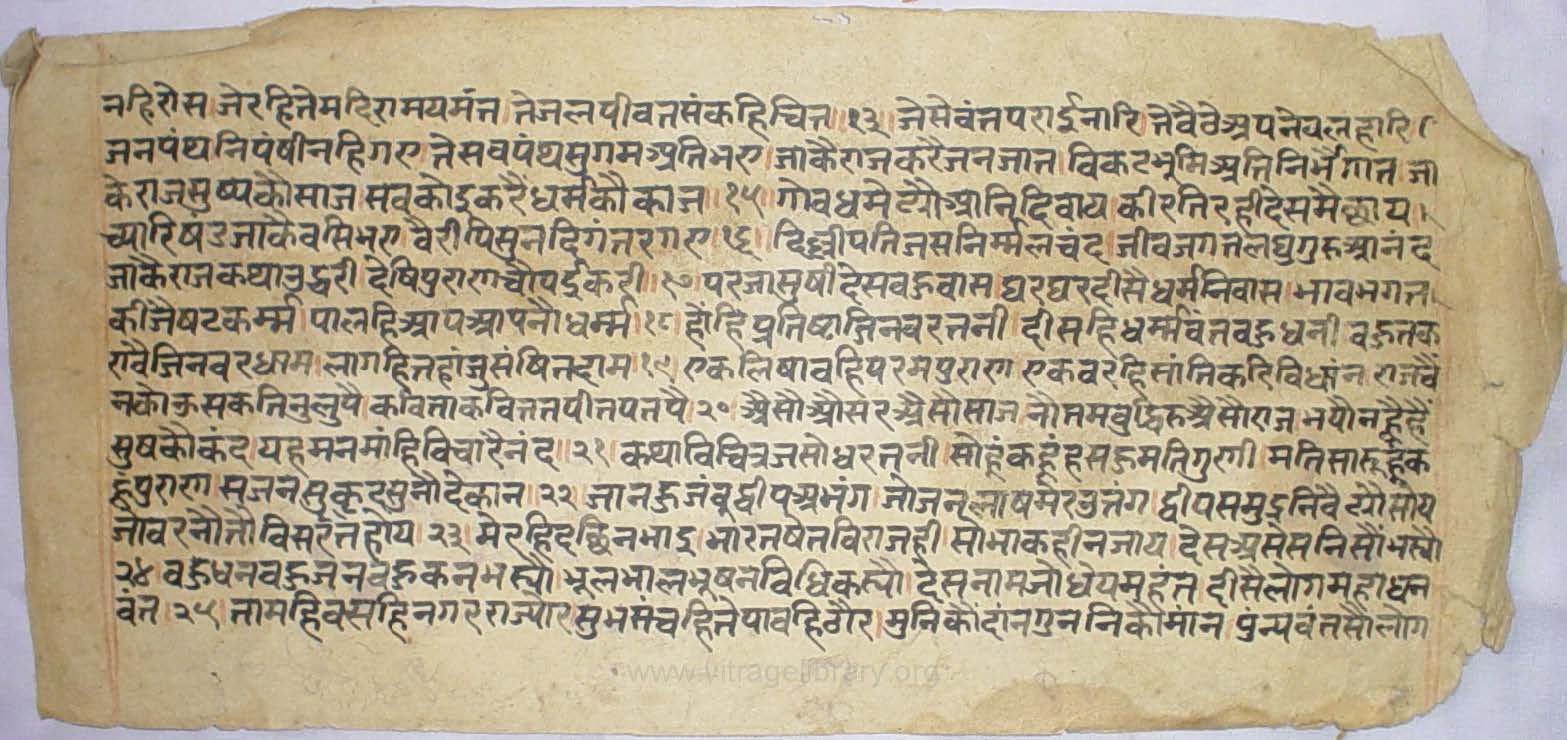 नहिरोस जेरहितेमदिरामयमंत तेजलपीवतसंकहिचित ॥१३॥ जेसेवंतपराईनारि तेवैठेअपनेपलहारि
जनपंथनिपंषीनहिगए तेसवपंथसुगमअतिभए जाकैराजकरैजनजात विकटभूमिअतिनिर्भैगात जा
केराजमुष्यकौसाज सवकोइकरैंधर्मकौकाज ॥१५॥ गोवधमेट्यौआनिदिवाय कीरतिरहीदेसमैछाय
च्यारिषंडजाकैवसिभए वैरीपिसुनदिगंतरगए १६॥ दिल्लीपतिजसनिर्म्मलचंद जीवजगतलघुगुरुआनंद
जाकैराजकथाउद्धरी देषिपुराणचौपईकरी ॥१७ परजासुषीदेसवहुवास घरघरदीसैधर्मनिवास भावभगत
कीजैषटकर्म्म पालहिआपआपनौधर्म्म १८ हौंहिप्रतिष्टाजिनवरतनी दीसहिधर्म्मवंतवहुधनी वहुतक
रावैजिनवरधाम लागहितहांजुसंषितदाम १९ एकलिषावहिपरमपुराण एककरहिसांतिकविधान राजवै
नकोऊसकतिनुलुपै कवित्ताकवित्ततपीतपतपै २० अैसौऔसरअैसौसाज नौतमबुद्धिरुअैसौराज भयौनह्वैहै
सुषकौकंद यहमनमांहिविचारैनंद ॥२१॥ कथाविचित्रजसोधरतनी सौहूंकहूंहसहुमतिगुणी मतिसारुहूंक
हूंपुराण सजनसुकृदसुनौदेकान २२ जानहुजंबूद्वीपअभंग जोजनलाषमेरउतंग द्वीपसमुद्रनिवैट्यौसोय
जोवरनौतौविसरतहोय २३ मेरहिदछिनभाइ भारतषेतविराजही सोभाकहीनजाय देसअसंसनिसौंभस्यौ
२४ वहुधनवहुजनवहुकनभस्यौ भूलभालभूषनविधिकस्यौ देसनामजोधेयमहंत दीसैलोगमहाधन
वंत २५ तामहिवसहिनगरराज्योर सुभसंचहितेपावहिठौर मुनिकौंदांनगुननिकौमांन पुंन्यवंतसौंलोग
www.vitragelibrary.org